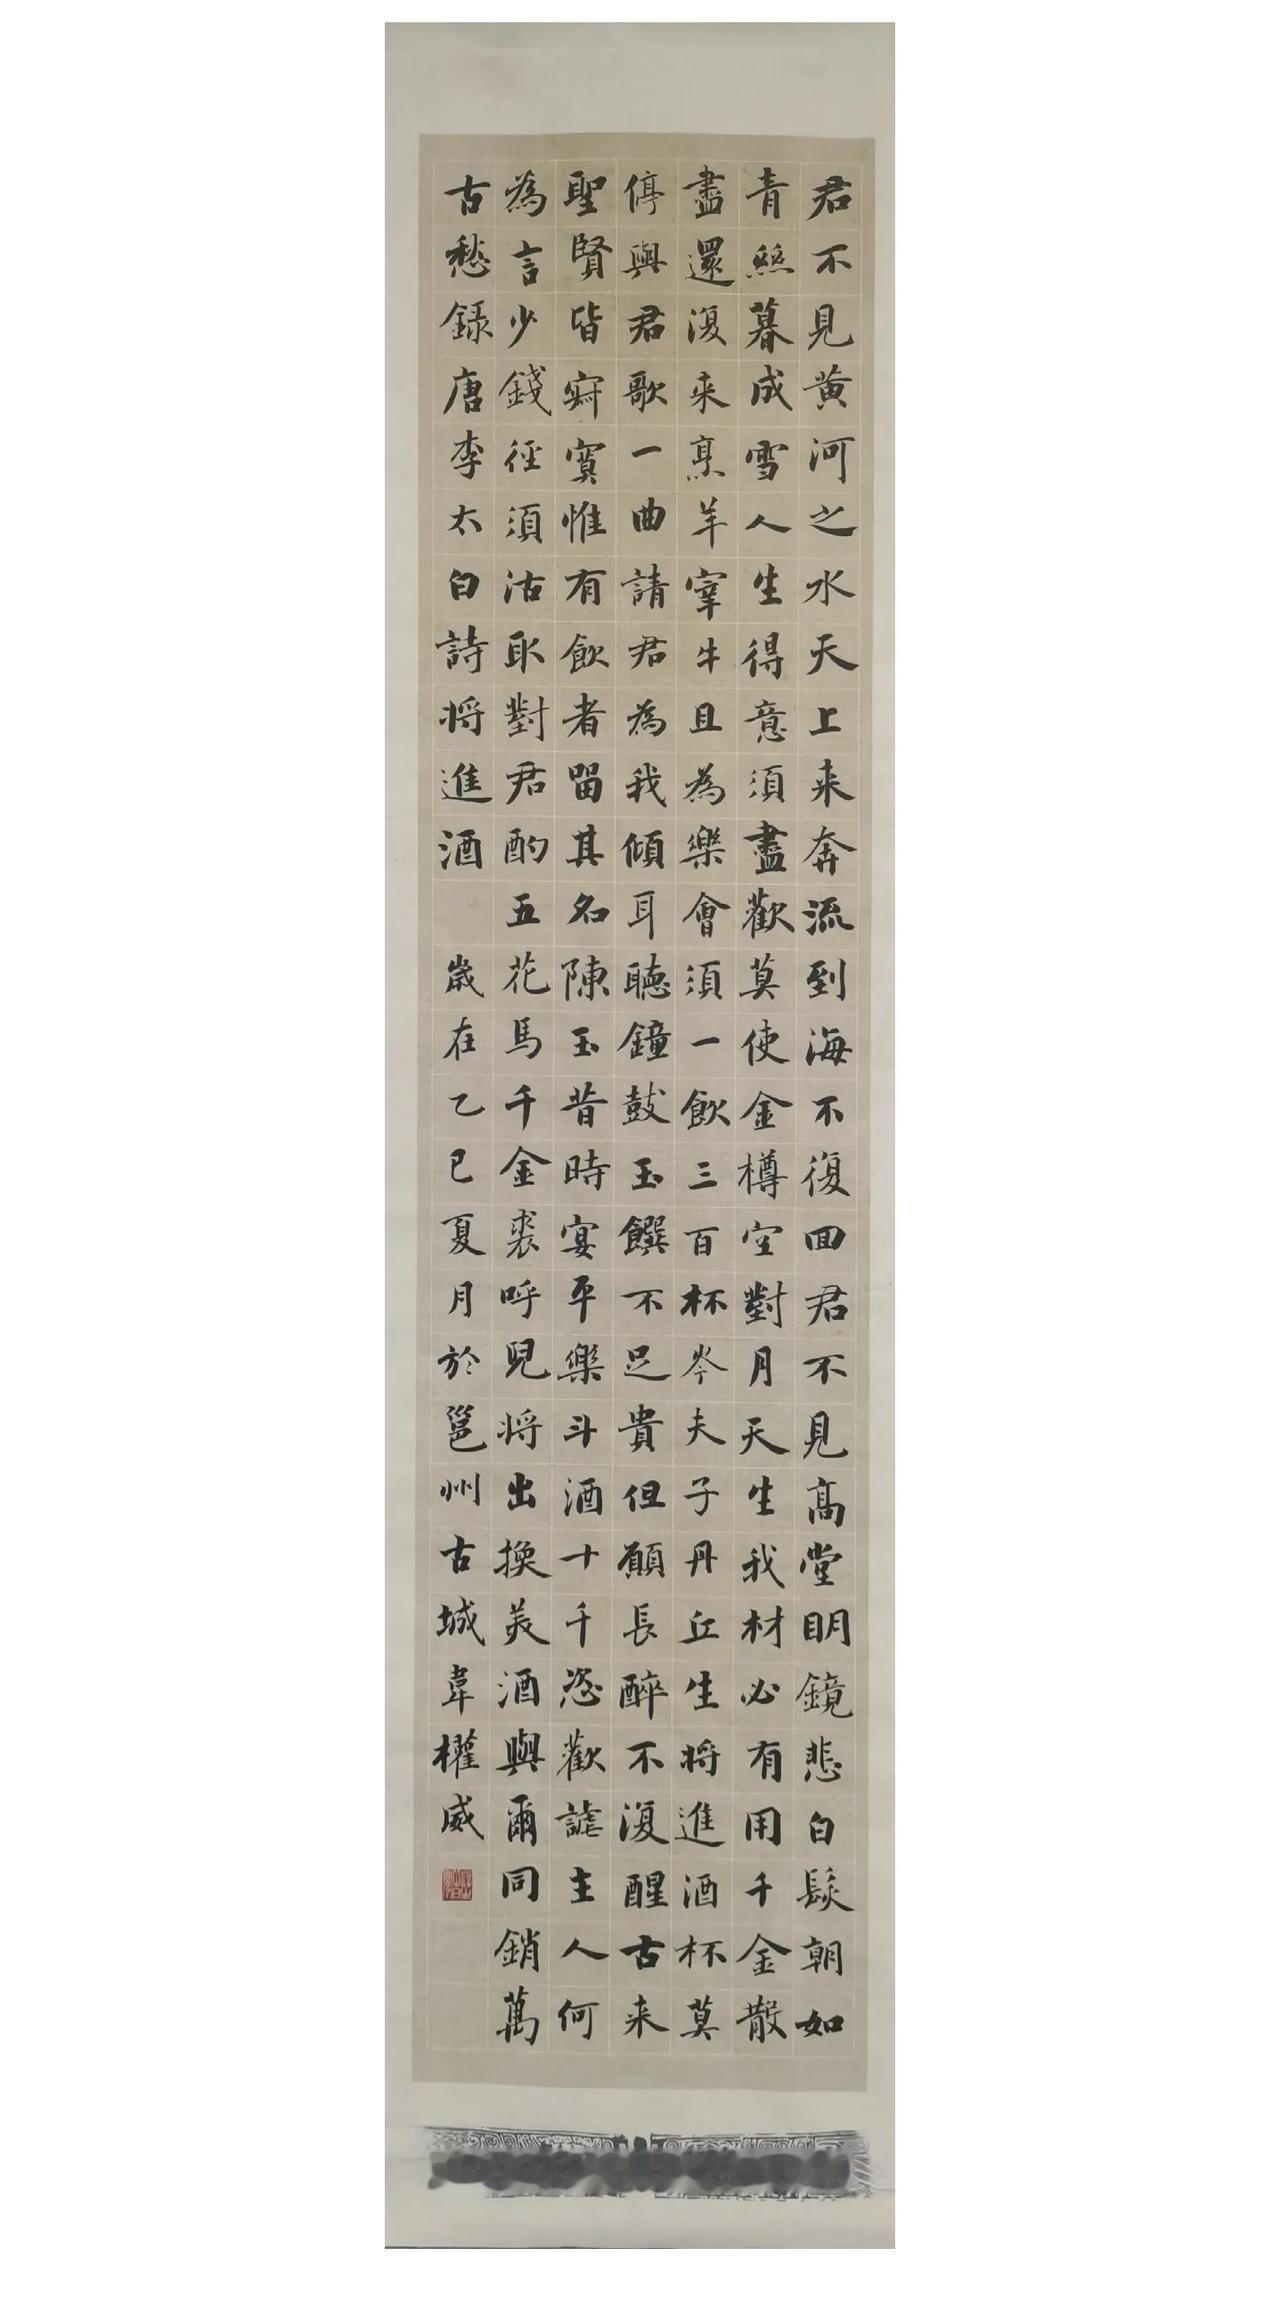 君不見黃河之水天上来奔流到海不復回君不見高堂明鏡悲白髮朝如
青絲暮成雪人生得意須盡歡莫使金樽空對月天生我材必有用千金散
盡還復来烹羊宰牛且為樂會須一飲三百杯岑夫子丹丘生将進酒杯莫
停與君歌一曲請君為我傾耳聽鐘鼓玉饌不足貴但願長醉不復醒古来
聖賢皆寂寞惟有飲者留其名陳王昔時宴平樂斗酒十千恣歡謔主人何
為言少錢徑須沽取對君酌五花馬千金裘呼兒将出換美酒與爾同銷萬
古愁錄唐李太白詩将進酒 歲在乙巳夏月於邕州古城韋權威